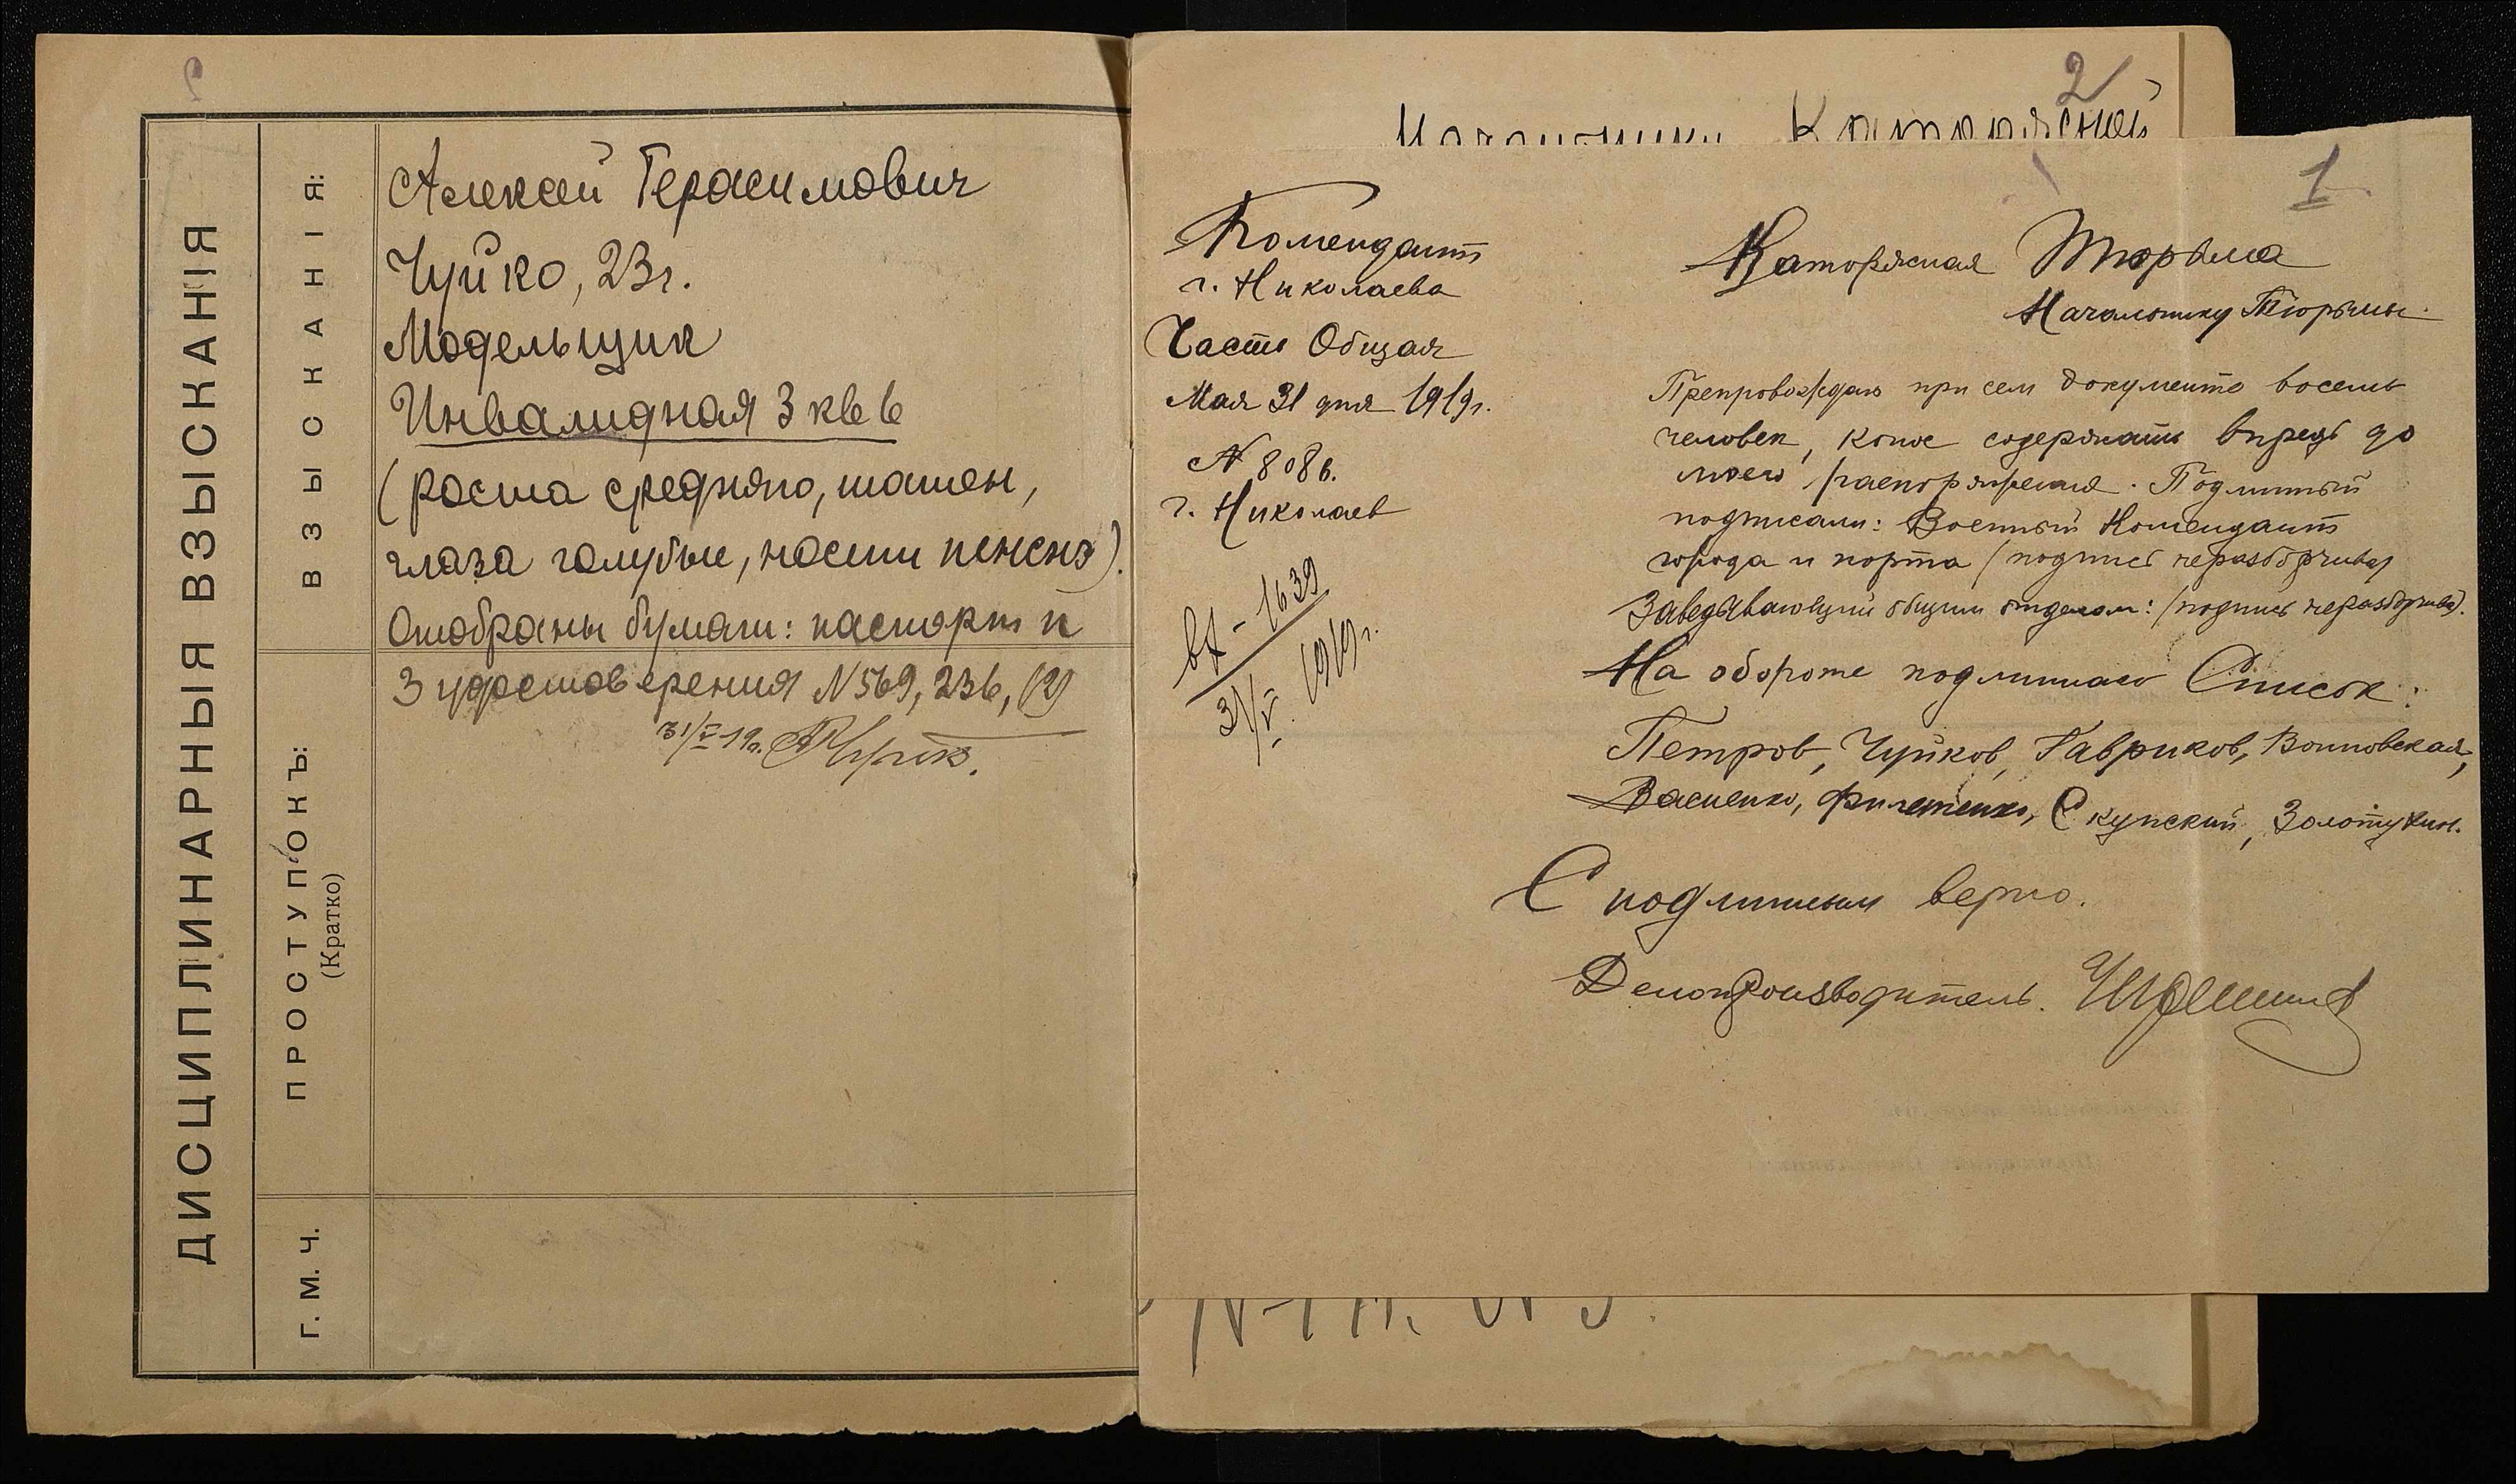 ДИСЦИПЛИНАРНЫЯ ВЗЫСКАНІЯ
ВЗЫСКАНІЯ:
ПРОСТУПОКЪ:
(Кратко)
Г. М. Ч.
Алексей Герасимович
Чуйко, 23 г.
Модельщик
Инвалидная 3 кв 6
(роста средняго, шатен,
глаза голубые, носит пенснэ).
Отобраны бумаги: паспорт и
3 удостоверения N 569, 236, (2)
31/V 19 г.
2
1
Комендант
г. Николаева
Часть Общая
Мая 31 дня 1919 г.
N 8086.
г. Николаев
вх - 1639
31/V. 1919 г.
Каторжная Тюрьма
Начальнику Тюрьмы.
Препровождаю при сем документе восемь
человек, коих содержать впредь до
моего распоряжения. Подлинный
подписали: Военный Комендант
города и порта (подпись неразборчива)
Заведывающий общим отделом: (подпись неразборчива).
На обороте подлиннаго Список:
Петров, Чуйков, Гавриков, Войновская,
Васценко, Филетенко, Скупский, Золотухин.
С подлинным верно.
Делопроизводитель.